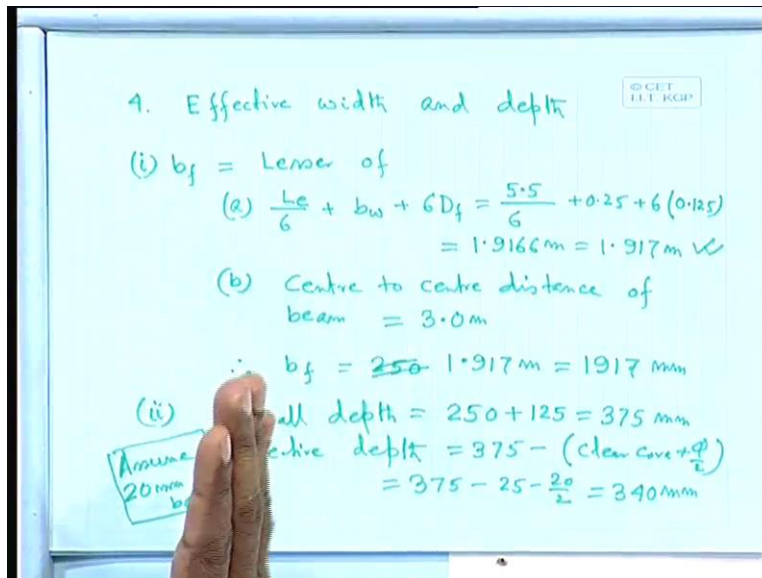 © CET
I.I.T. KGP
4. Effective width and depth
(i) bf = Lesser of
(a) Le/6 + bw + 6Df = 5.5/6 + 0.25 + 6(0.125)
= 1.9166 m = 1.917 m
(b) Centre to centre distance of
beam = 3.0 m
∴ bf = 250 1.917 m = 1917 mm
(ii) all depth = 250 + 125 = 375 mm
ective depth = 375 - (clear cover + φ/2)
= 375 - 25 - 20/2 = 340 mm
Assume
20 mm